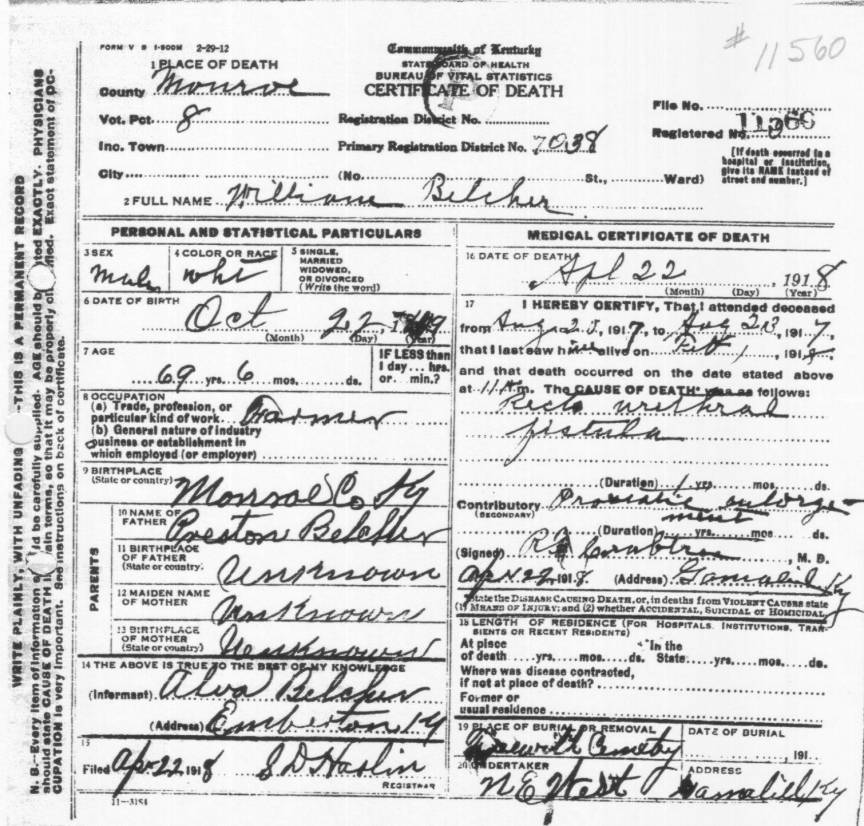 # 11560
FORM V S 1-500M 2-29-12
Commonwealth of Kentucky
STATE BOARD OF HEALTH
BUREAU OF VITAL STATISTICS
CERTIFICATE OF DEATH
1 PLACE OF DEATH
County Monroe
Vot. Pct 8
Inc. Town
City
Registration District No.
Primary Registration District No. 7038
(No. St., Ward)
File No. 11560
Registered No.
[If death occurred in a
hospital or institution,
give its NAME instead of
street and number.]
2 FULL NAME William Belcher
PERSONAL AND STATISTICAL PARTICULARS
3 SEX
Male
4 COLOR OR RACE
wht
5 SINGLE,
MARRIED
WIDOWED,
OR DIVORCED
(Write the word)
6 DATE OF BIRTH
Oct 22
(Month) (Day) (Year)
7 AGE
69 yrs. 6 mos. ds.
IF LESS than
1 day... hrs.
or... min.?
8 OCCUPATION
(a) Trade, profession, or
particular kind of work Farmer
(b) General nature of industry
business or establishment in
which employed (or employer)
9 BIRTHPLACE
(State or country)
Monroe Co Ky
PARENTS
10 NAME OF
FATHER
Preston Belcher
11 BIRTHPLACE
OF FATHER
(State or country)
Unknown
12 MAIDEN NAME
OF MOTHER
Unknown
13 BIRTHPLACE
OF MOTHER
(State or country)
Unknown
14 THE ABOVE IS TRUE TO THE BEST OF MY KNOWLEDGE
(Informant) Alva Belcher
(Address) Emberton Ky
15
Filed Apr 22 1918 S D Harlin
REGISTRAR
11-3184
MEDICAL CERTIFICATE OF DEATH
16 DATE OF DEATH
Apl 22, 1918
(Month) (Day) (Year)
17 I HEREBY CERTIFY, That I attended deceased
from Aug 23, 1917, to Aug 23, 1917,
that I last saw him alive on 1918.
and that death occurred on the date stated above
at 11 m. The CAUSE OF DEATH was as follows:
Recto urethral
fistula
(Duration) 1 yrs. mos. ds.
Contributory Prostatic enlarge-
(SECONDARY) ment
(Duration) yrs. mos. ds.
(Signed) R Crabtree, M. D.
Apr 22, 1918. (Address) Gamaliel Ky
State the DISEASE CAUSING DEATH, or, in deaths from VIOLENT CAUSES state
(1) MEANS OF INJURY; and (2) whether ACCIDENTAL, SUICIDAL OR HOMICIDAL.
18 LENGTH OF RESIDENCE (FOR HOSPITALS, INSTITUTIONS, TRAN-
SIENTS OR RECENT RESIDENTS)
At place In the
of death yrs. mos. ds. State yrs. mos. ds.
Where was disease contracted,
if not at place of death?
Former or
usual residence
19 PLACE OF BURIAL OR REMOVAL
DATE OF BURIAL
, 191
20 UNDERTAKER
N E West
ADDRESS
Gamaliel Ky
WRITE PLAINLY, WITH UNFADING THIS IS A PERMANENT RECORD
N. B.—Every item of information should be carefully supplied. AGE should be stated EXACTLY. PHYSICIANS
should state CAUSE OF DEATH in plain terms, so that it may be properly classified. Exact statement of OC-
CUPATION is very important. See instructions on back of certificate.